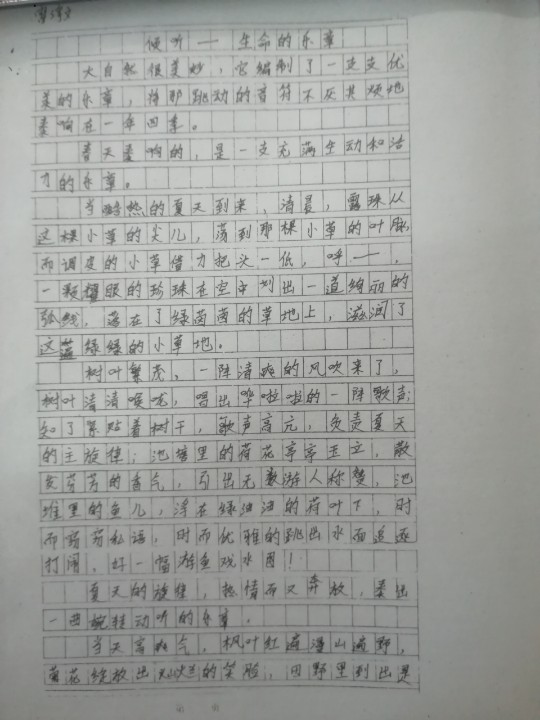 倾听——生命的乐章
大自然很美妙，它编制了一支支优
美的乐章，将那跳动的音符不厌其烦地
奏响在一年四季。
春天奏响的，是一支充满生动和活
力的乐章。
当酷热的夏天到来，清晨，露珠从
这棵小草的尖儿，荡到那棵小草的叶脉，
而调皮的小草借力把头一低，呼——，
一颗耀眼的珍珠在空中划出一道绚丽的
弧线，落在了绿茵茵的草地上，滋润了
这蓝绿绿的小草地。
树叶繁茂，一阵清爽的风吹来了，
树叶清清喉咙，唱出哗啦啦的一阵歌声；
知了紧贴着树干，歌声高亢，负责夏天
的主旋律；池塘里的荷花亭亭玉立，散
发芬芳的香气，引出无数游人称赞，池
塘里的鱼儿，浮在绿油油的荷叶下，时
而窃窃私语，时而优雅的跳出水面追逐
打闹，好一幅游鱼戏水图！
夏天的旋律，热情而又奔放，奏出
一曲婉转动听的乐章。
当天高秋气，枫叶红遍漫山遍野，
菊花绽放出灿烂的笑脸，田野里到出是